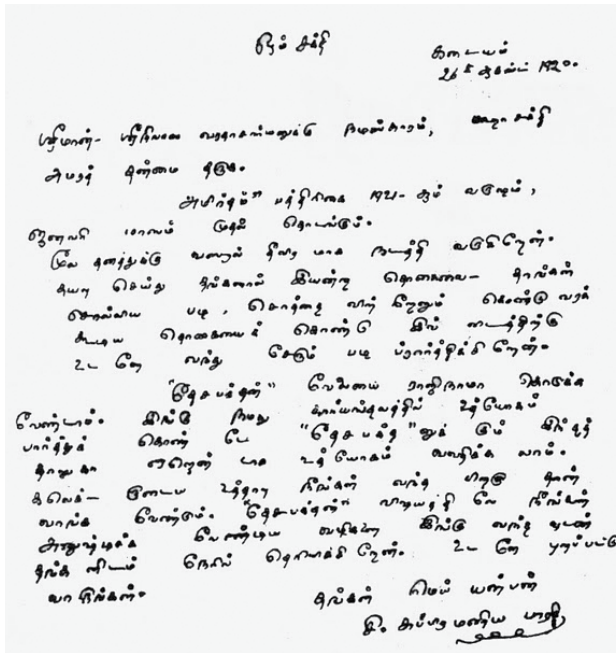 ஓம் சக்தி
கடையம்
26 ஆகஸ்ட் 1920.
ஸ்ரீமான் ஸ்ரீநிவாஸ வரதாசார்யனுக்கு நமஸ்காரம், பராசக்தி
அமரத் தன்மை தருக.
அமிர்தம்" பத்திரிகை 1921-ஆம் வருஷம்,
ஜனவரி மாஸம் முதல் தொடங்கும்.
மூல தனத்துக்கு வஸூல் தீவிர மாக நடத்தி வருகிறேன்.
தயவு செய்து தங்களால் இயன்ற தொகையை தாங்கள்
சொல்லிய படி, சொத்தை விற் றேனும் கொண்டு வரக்
கூடிய தொகையைக் கொண் டு இவ் விடத்திற்கு
உட னே வந்து சேரும் படி ப்ரார்த்திக்கி றேன்.
"தேச பக்தன்" வேலையை ராஜிநாமா கொடுக்க
வேண்டாம். இங்கு நமது கார்யஸ்தலத்தில் உத்யோகம்
பார்த்துக் கொண் டே "தேச பக்த "னுக் கும் இந்தத்
தாலுகா ஏஜெண் டாக உத்யோகம் வஹிக்க லாம்.
உத்தரவு நீங்கள் வந்த பிறகு தான்
வாங்க வேண்டும். "தேசபக்தன்" விஷயத்தி லே நீங்கள்
அனுஷ்டிக்க வேண்டிய வழிகளை இங்கு வந்த வுடன்
தங்க ளிடம் நேரில் தெரிவிக்கி றேன். உட னே புறப்பட்டு
வா ருங்கள்.
தங்கள் மெய் யன்பன்
சி. சுப்பிரமணிய பாரதி